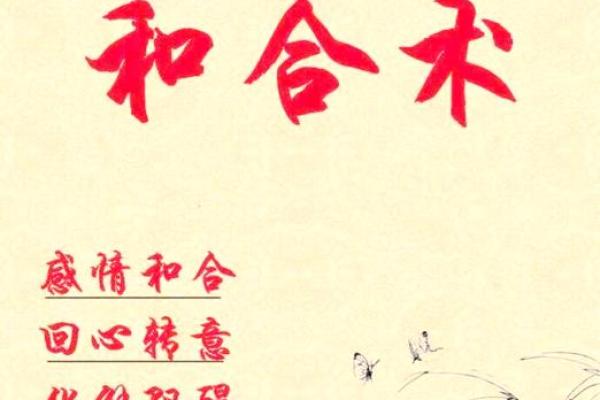 和合术
感情和合
回心转意